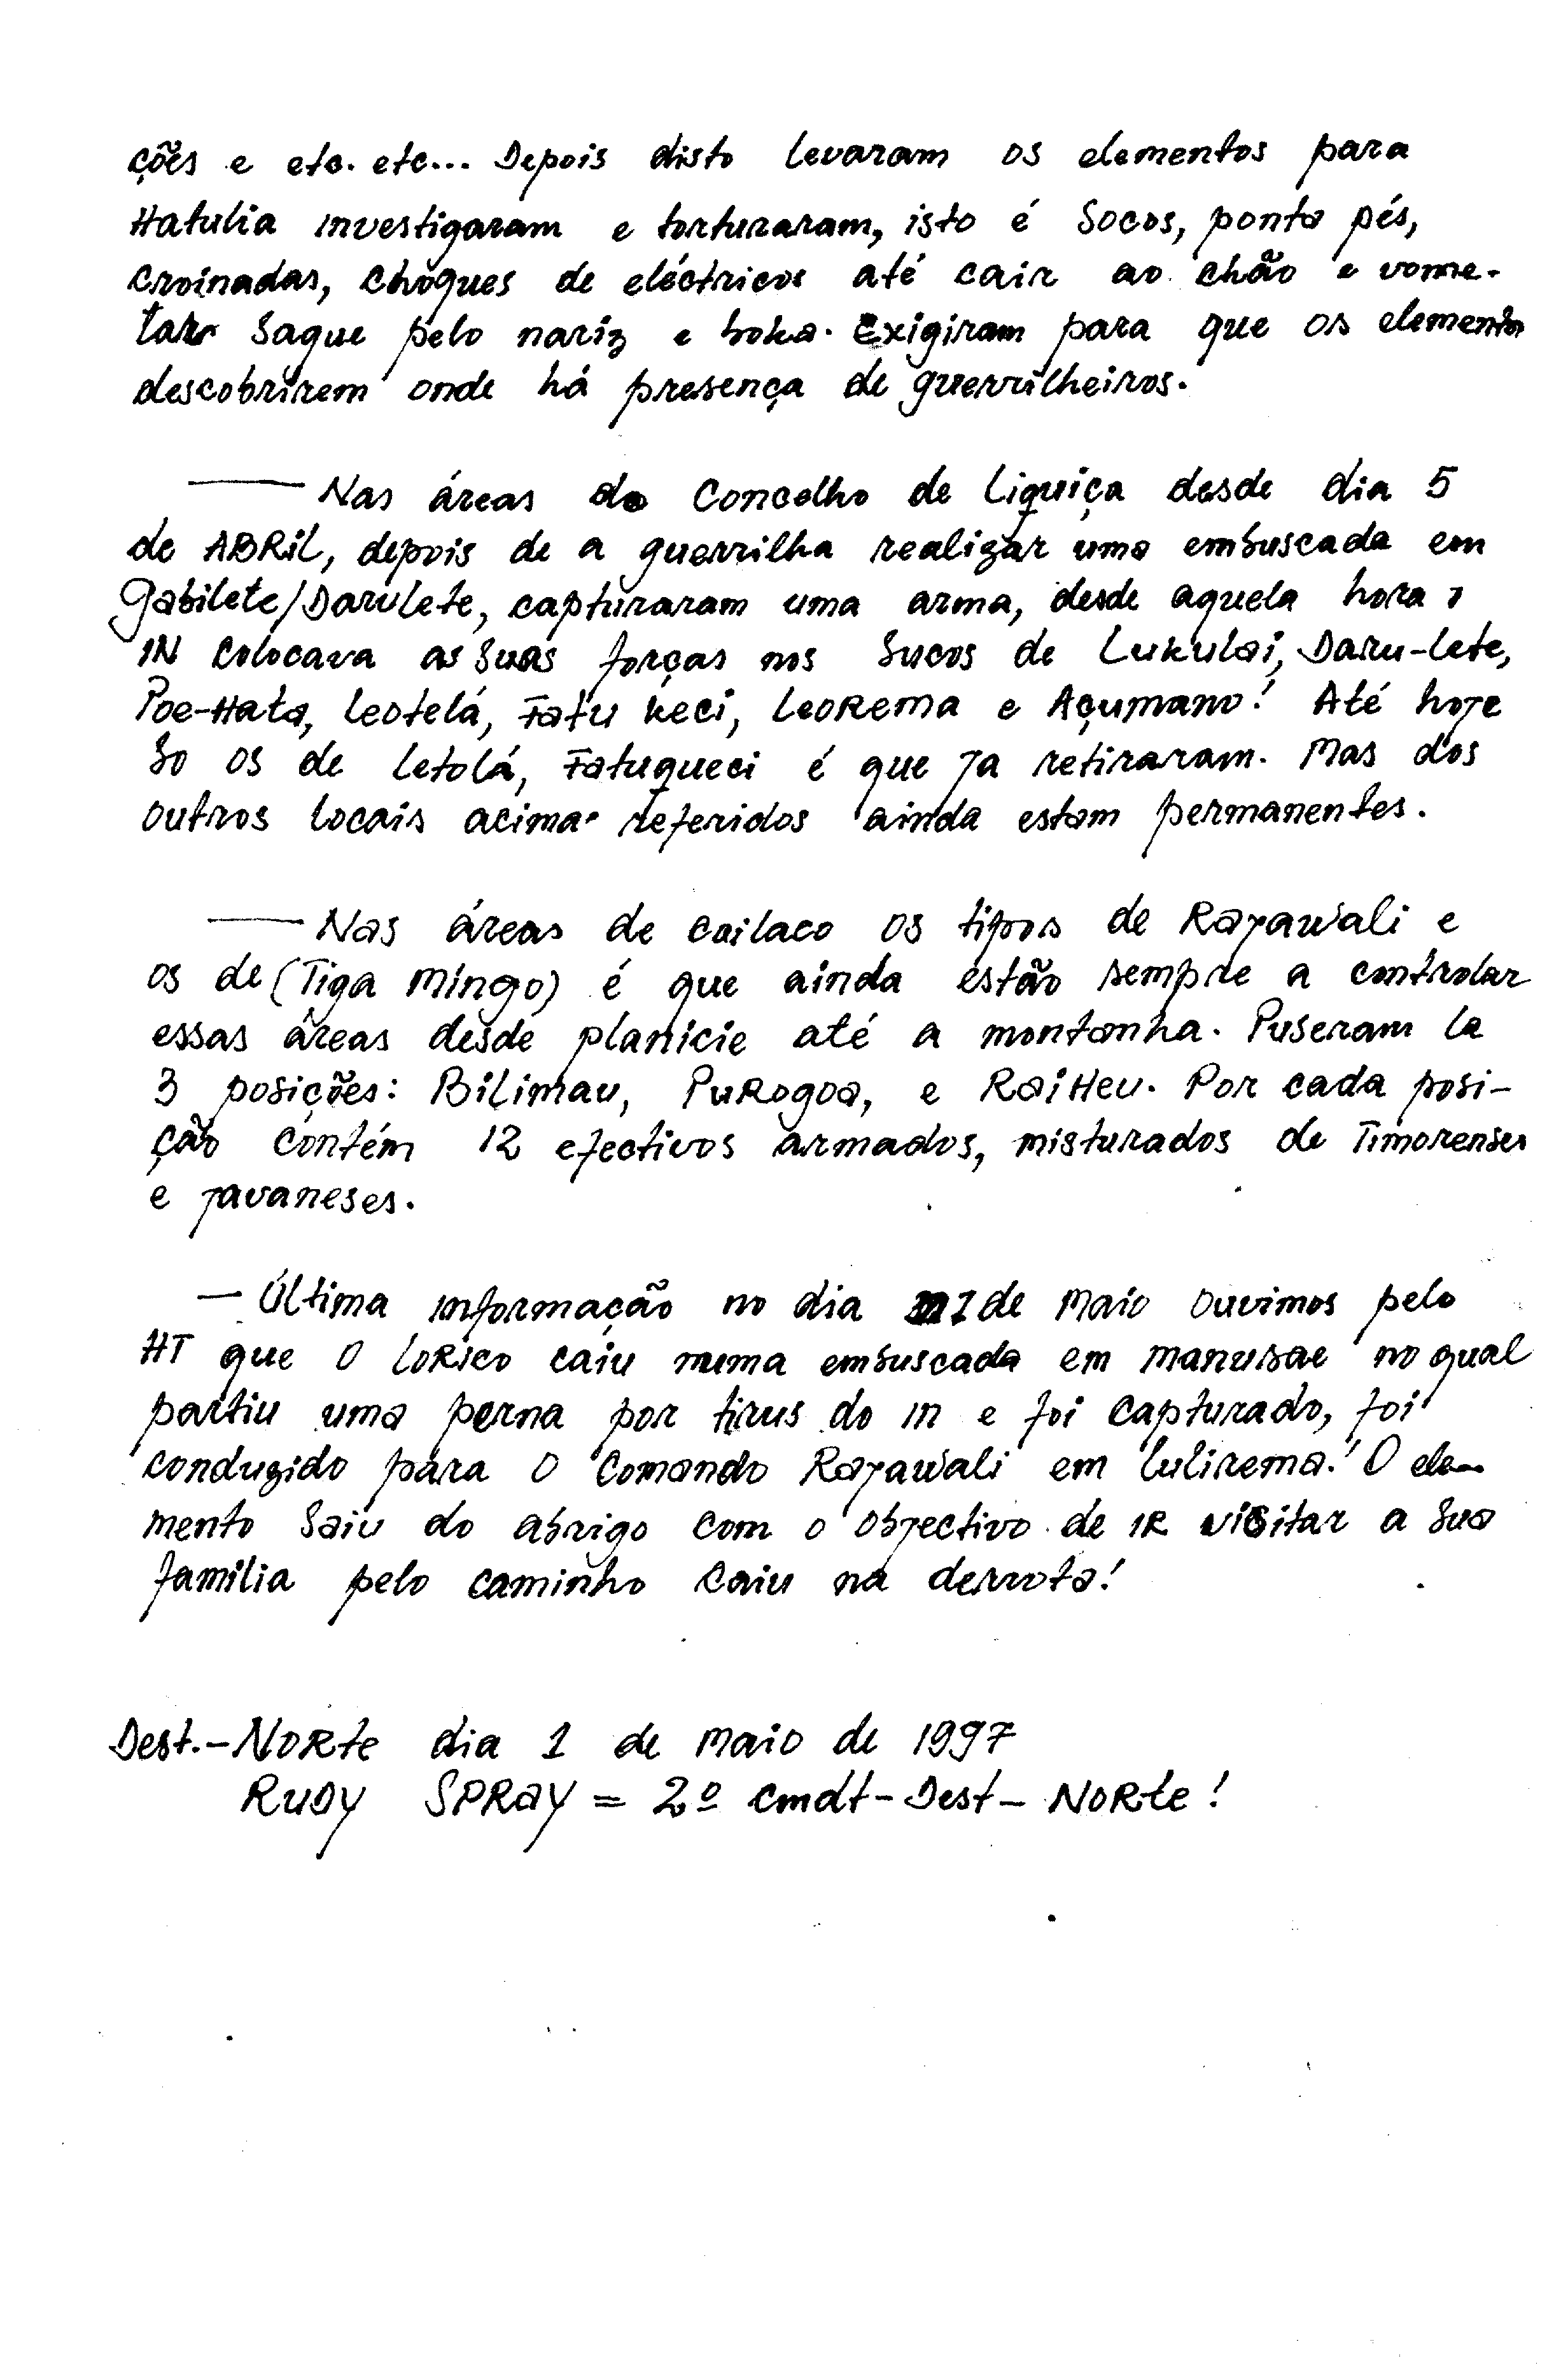 ções e etc. etc... Depois disto levaram os elementos para
Hatulia investigaram e torturaram, isto é Socos, ponta pés,
croinadas, choques de eléctricos até cair ao chão e vome-
tar saque pelo nariz e boka. Exigiram para que os elementos
descobrirem onde há presença de guerrilheiros.
—— Nas áreas do Concelho de Liquiça desde dia 5
de ABRIL, depois de a guerrilha realizar uma embuscada em
Gabilete/Darulete, capturaram uma arma, desde aquela hora o
IN colocava as suas forças nos Sucos de Lukulai, Daru-lete,
Poe-Hata, leotelá, Fatu keci, Leorema e Açumano! Até hoje
So os de letolá, Fatuqueci é que ja retiraram. Mas dos
outros locais acima referidos ainda estam permanentes.
—— Nas áreas de cailaco os tipos de Rajawali e
os de (Tiga Mingo) é que ainda estão sempre a controlar
essas áreas desde planicie até a montanha. Puseram la
3 posições: Bilimau, Purogoa, e RaiHeu. Por cada posi-
ção contém 12 efectivos armados, misturados de Timorenses
e javaneses.
— Última informação no dia 1 de Maio ouvimos pelo
HT que o Lorico caiu numa embuscada em manusae no qual
partiu uma perna por tirus do in e foi capturado, foi
conduzido para o Comando Rajawali em lulirema! O ele-
mento Saiu do abrigo com o objectivo de ir visitar a sua
familia pelo caminho caiu na derrota!
Dest.-Norte dia 1 de Maio de 1997
Rudy SPRay = 2º cmdt-Dest-Norte!